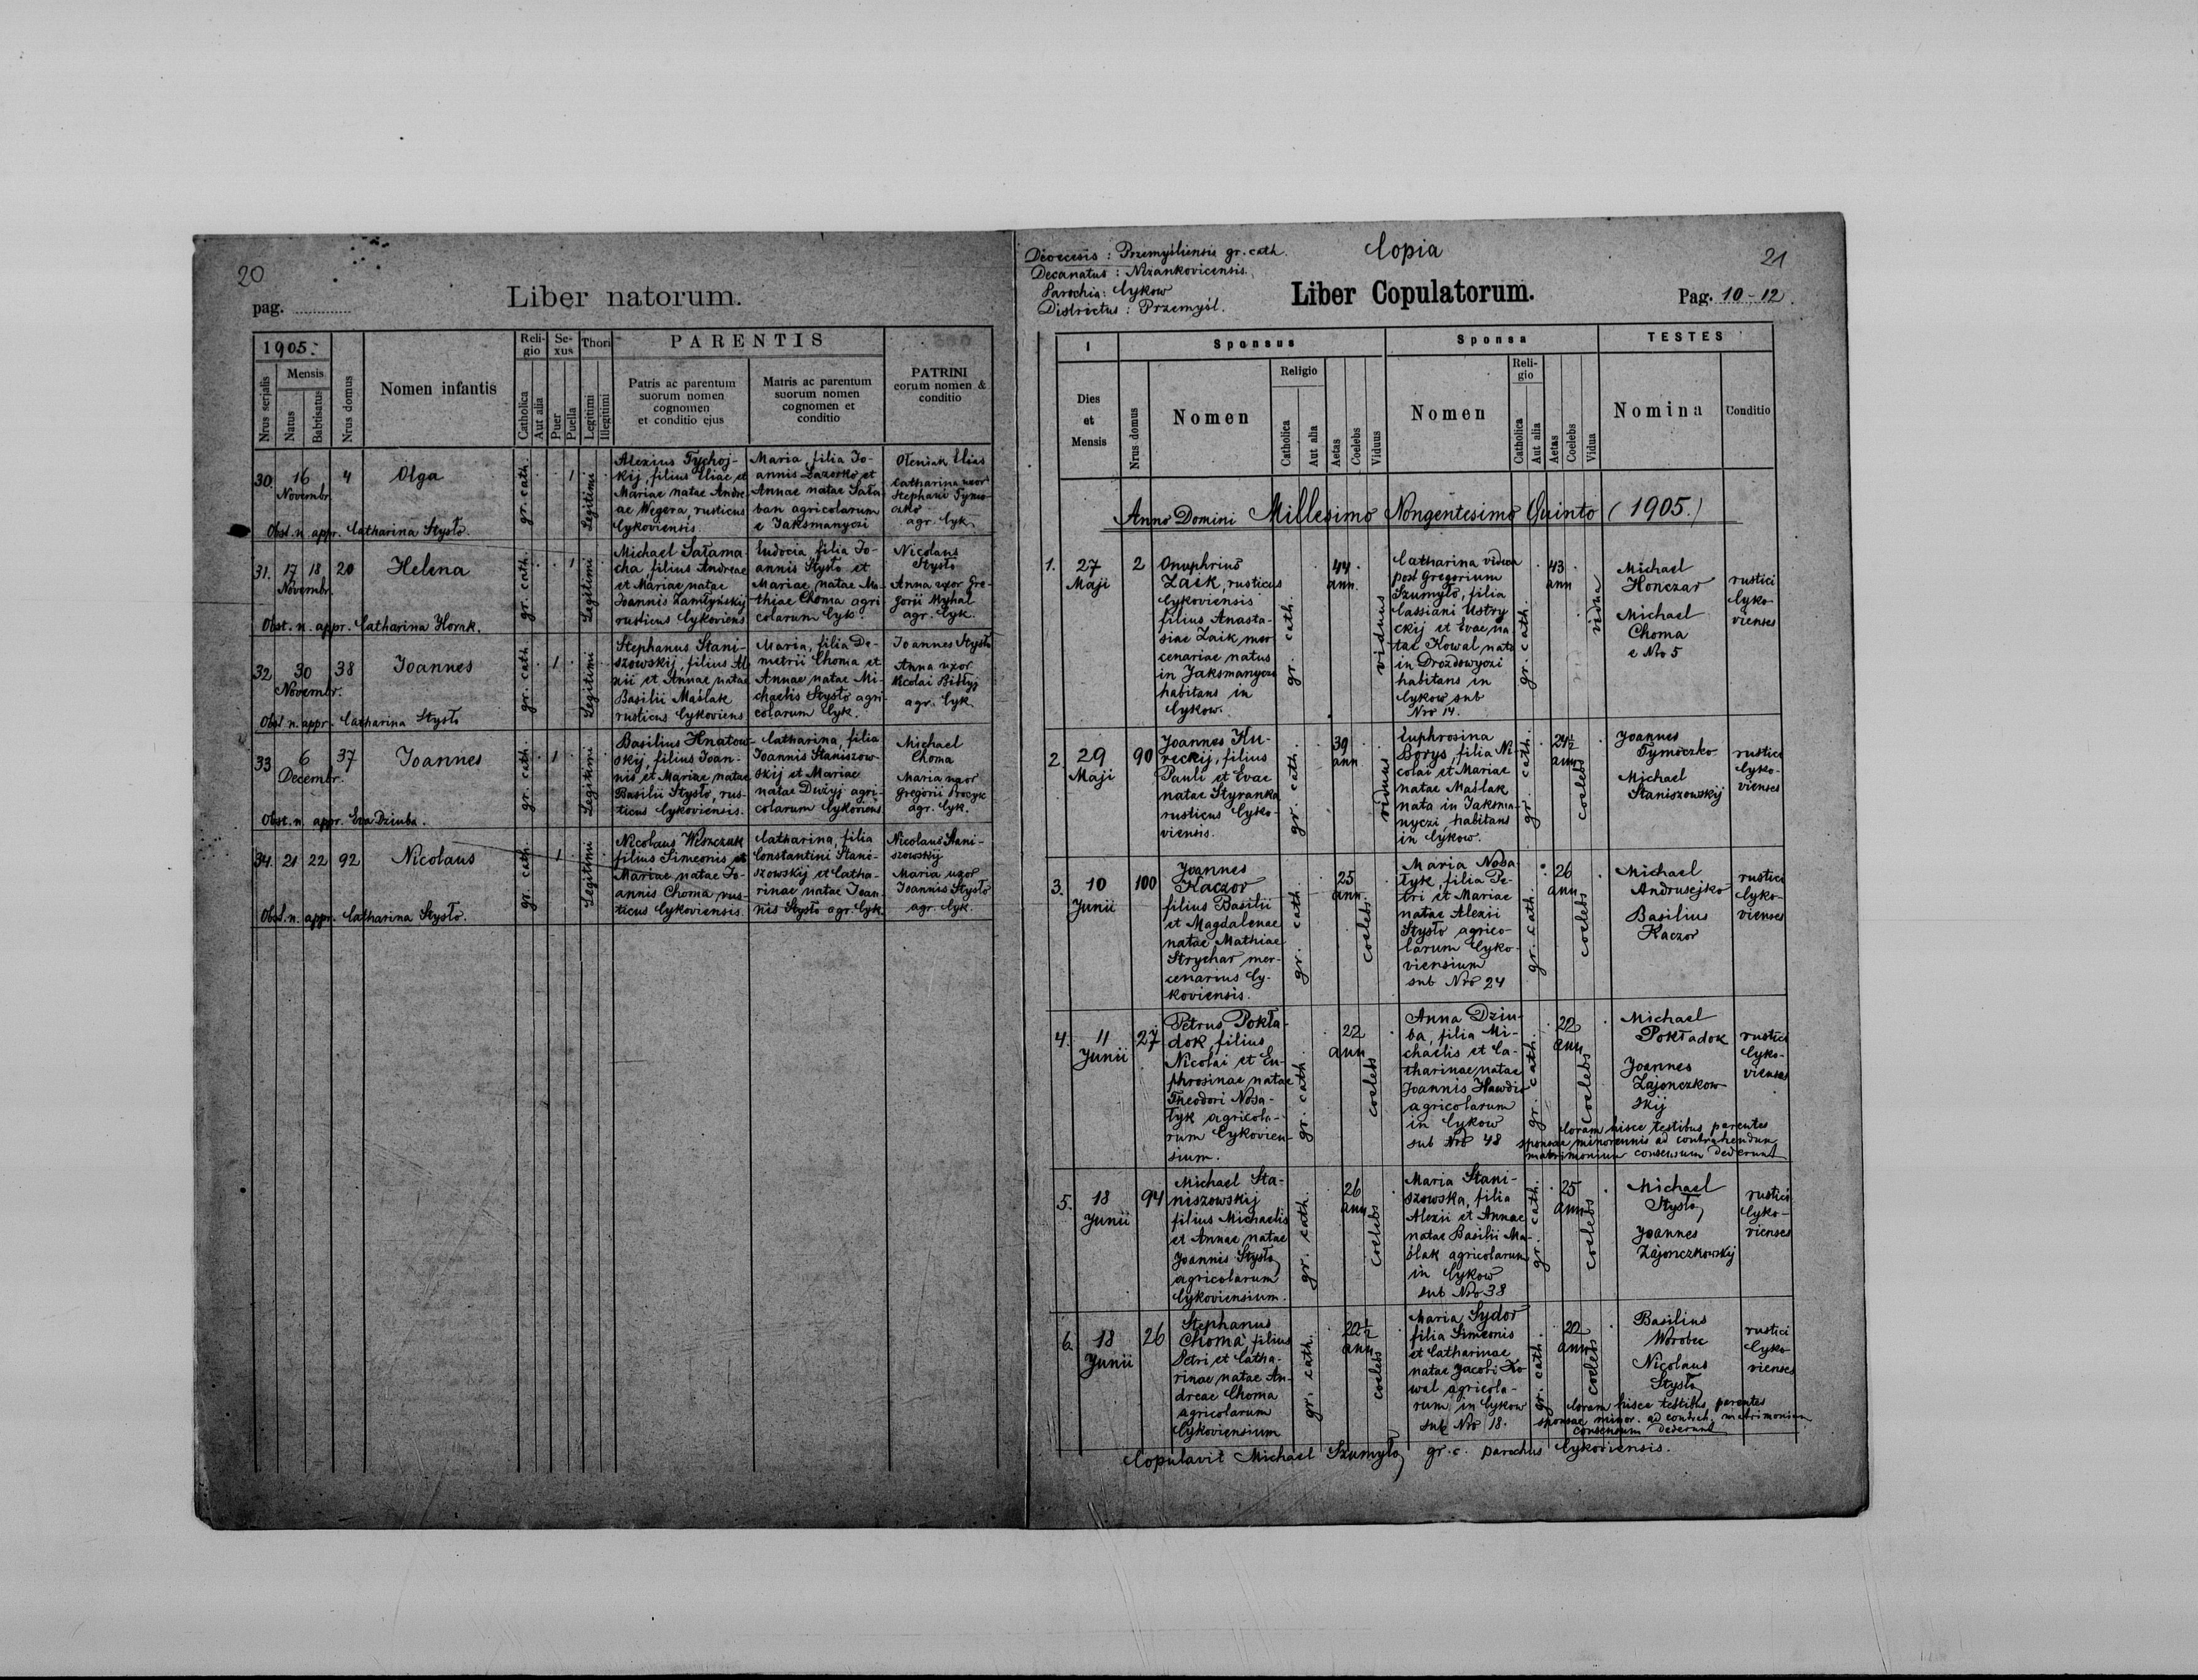 20
pag. ............
Liber natorum.
1905.
Nrus serjalis
Mensis
Natus
Babtisatus
Nrus domus
Nomen infantis
Reli-
gio
Catholica
Aut alia
Se-
xus
Puer
Puella
Thori
Legitimi
Illegitimi
PARENTIS
Patris ac parentum
suorum nomen
cognomen
et conditio ejus
Matris ac parentum
suorum nomen
cognomen et
conditio
PATRINI
eorum nomen &
conditio
30. 16 Novembr. 4
Olga
gr. cath.
1
Legitimi
Alexius Tychoj-
kij, filius Eliae et
Mariae natae Andre-
ae Wegera, rusticus
Cykoviensis.
Maria, filia Jo-
annis Lazorko et
Annae natae Sała
ban agricolarum
e Jaksmanyczi
Oleniak Elias
Catharina uxor
Stephani Tymo-
czko
agr. Cyk.
Obst. n. appr. Catharina Stysło.
31. 17 18 Novembr. 20
Helena
gr. cath.
1
Legitimi
Michael Sałama-
cha, filius Andreae
et Mariae natae
Joannis Zamłyńskij
rusticus Cykoviens
Eudocia, filia Jo-
annis Stysło et
Mariae natae Ma-
thiae Choma agri
colarum Cyk.
Nicolaus
Stysło
Anna uxor Gre-
gorii Myhal
agr. Cyk.
Obst. n. appr. Catharina Horak.
32. 30 Novembr. 38
Joannes
gr. cath.
1
Legitimi
Stephanus Stani-
szowskij, filius Ale
xii et Annae natae
Basilii Maślak
rusticus Cykoviens
Maria, filia De-
metrii Choma et
Annae natae Mi-
chaelis Stysło agri-
colarum Cyk.
Joannes Stysło
Anna uxor
Nicolai Biłłyj
agr. Cyk.
Obst. n. appr. Catharina Stysło
33. 6 Decembr. 37
Joannes
gr. cath.
1
Legitimi
Basilius Hnatow-
skij, filius Joan-
nis et Mariae natae
Basilii Stysło, rus-
ticus Cykoviensis.
Catharina, filia
Joannis Staniszow-
skij et Mariae
natae Dużyj agri-
colarum Cykoviens
Michael
Choma
Maria uxor
Gregorii Procyk
agr. Cyk.
Obst. n. appr. Eva Dziuba.
34. 21 22 92
Nicolaus
gr. cath.
1
Legitimi
Nicolaus Wiszczuk
filius Simeonis et
Mariae natae Jo-
annis Choma rus-
ticus Cykoviensis.
Catharina, filia
Constantini Stani-
szowskij et Catha-
rinae natae Joan-
nis Stysło agr. Cyk.
Nicolaus Stani-
szowskij
Maria uxor
Joannis Stysło
agr. Cyk.
Obst. n. appr. Catharina Stysło.
Dioecesis : Przemysliensis gr. cath.
Decanatus : Nizankovicensis.
Parochia: Cykow
Districtus : Przemyśl.
Copia
21
Liber Copulatorum.
Pag. 10 - 12.
1
Dies
et
Mensis
Sponsus
Nrus domus
Nomen
Religio
Catholica
Aut alia
Aetas
Coelebs
Viduus
Sponsa
Nomen
Reli-
gio
Catholica
Aut alia
Aetas
Coelebs
Vidua
TESTES
Nomina
Conditio
Anno Domini Millesimo Nongentesimo Quinto (1905.)
1. 27 Maji 2
Onuphrius
Zaik, rusticus
Cykoviensis
filius Anasta-
siae Zaik mer-
cenariae natus
in Jaksmanyczi
habitans in
Cykow.
gr. cath.
44 ann.
viduus
Catharina vidua
post Gregorium
Szumyło, filia
Cassiani Ustry
ckij et Evae na
tae Kowal nata
in Drozdowyczi
habitans in
Cykow sub
Nro 14.
gr. cath.
43 ann
vidua
Michael
Honczar
Michael
Choma
e Nro 5
rustici
Cyko-
vienses
2. 29 Maji 90
Joannes Ku-
reckij, filius
Pauli et Evae
natae Styranka
rusticus Cyko-
viensis.
gr. cath.
39 ann
viduus
Euphrosina
Borys, filia Ni-
colai et Mariae
natae Maślak
nata in Jaksma-
nyczi, habitans
in Cykow.
gr. cath.
24½ ann
coelebs
Joannes
Tymoczko
Michael
Staniszowskij
rustici
Cyko-
vienses
3. 10 Junii 100
Joannes
Kaczor
filius Basilii
et Magdalenae
natae Mathiae
Strychar mer-
cenarius Cy-
koviensis.
gr. cath.
25 ann.
coelebs
Maria Nosa-
łyk, filia Pe-
tri et Mariae
natae Alexii
Stysło agrico-
larum Cyko-
viensium
sub Nro 24
gr. cath.
26 ann
coelebs
Michael
Andrusejko
Basilius
Kaczor
rustici
Cyko-
vienses
4. 11 Junii 27
Petrus Pokła-
dok, filius
Nicolai et Eu-
phrosinae natae
Theodori Nosa-
łyk agricola-
rum Cykovien-
sium.
gr. cath.
22 ann
coelebs
Anna Dziu-
ba, filia Mi-
chaelis et Ca-
tharinae natae
Joannis Hawdio
agricolarum
in Cykow
sub Nro 48
gr. cath.
22 ann
coelebs
Michael
Pokładok
Joannes
Zajonczkow
skij
rustici
Cyko-
vienses
Coram hisce testibus parentes
sponsae minorennis ad contrahendum
matrimonium consensum dederunt
5. 18 Junii 94
Michael Sta-
niszowskij
filius Michaelis
et Annae natae
Joannis Stysło
agricolarum
Cykoviensium.
gr. cath.
26 ann
coelebs
Maria Stani-
szowska, filia
Alexii et Annae
natae Basilii Ma-
ślak agricolarum
in Cykow
sub Nro 38
gr. cath.
25 ann
coelebs
Michael
Stysło
Joannes
Zajonczkowskij
rustici
Cyko-
vienses
6. 18 Junii 26
Stephanus
Choma, filius
Petri et Catha-
rinae natae An-
dreae Choma
agricolarum
Cykoviensium
gr. cath.
22½ ann
coelebs
Maria Sydor
filia Simeonis
et Catharinae
natae Jacobi Ko
wal agricola-
rum in Cykow
sub Nro 18.
gr. cath.
22 ann
coelebs
Basilius
Worobec
Nicolaus
Stysło
rustici
Cyko-
vienses
Coram hisce testibus parentes
sponsae minor. ad contrah. matrimonium
consensum dederunt
Copulavit Michael Szumyło gr. c. parochus Cykoviensis.